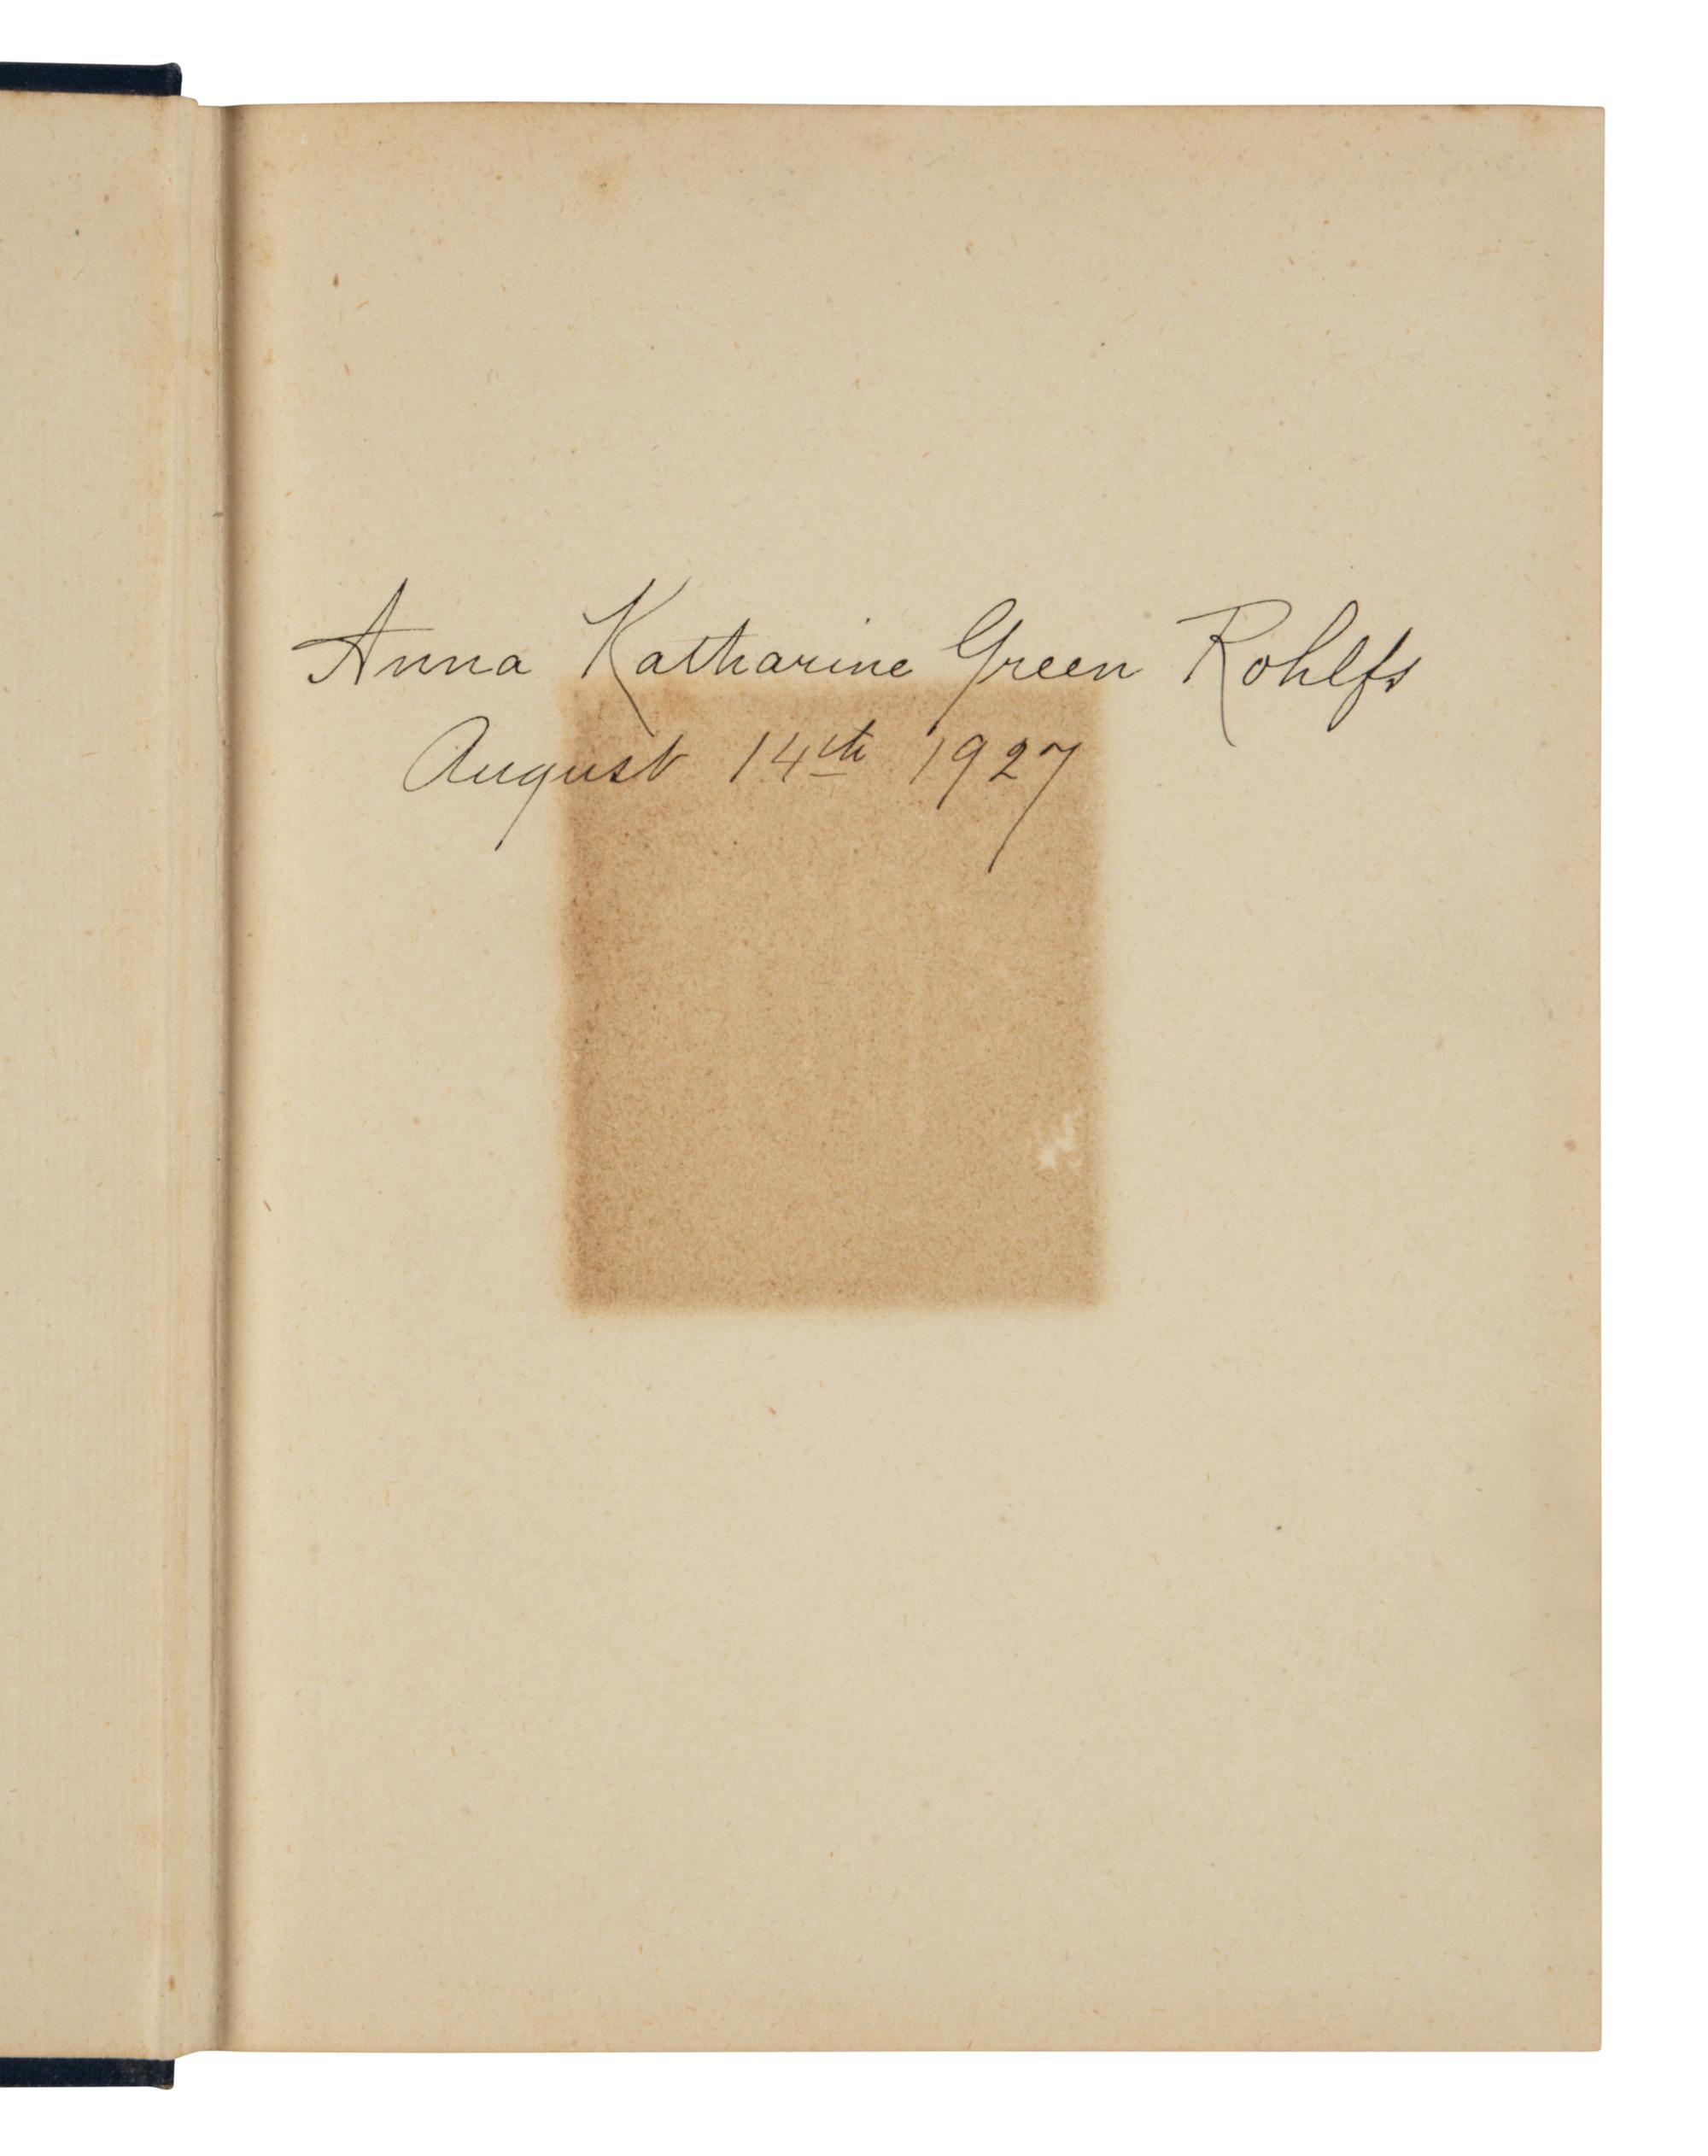 Anna Katharine Green Rohlfs
August 14th 1927